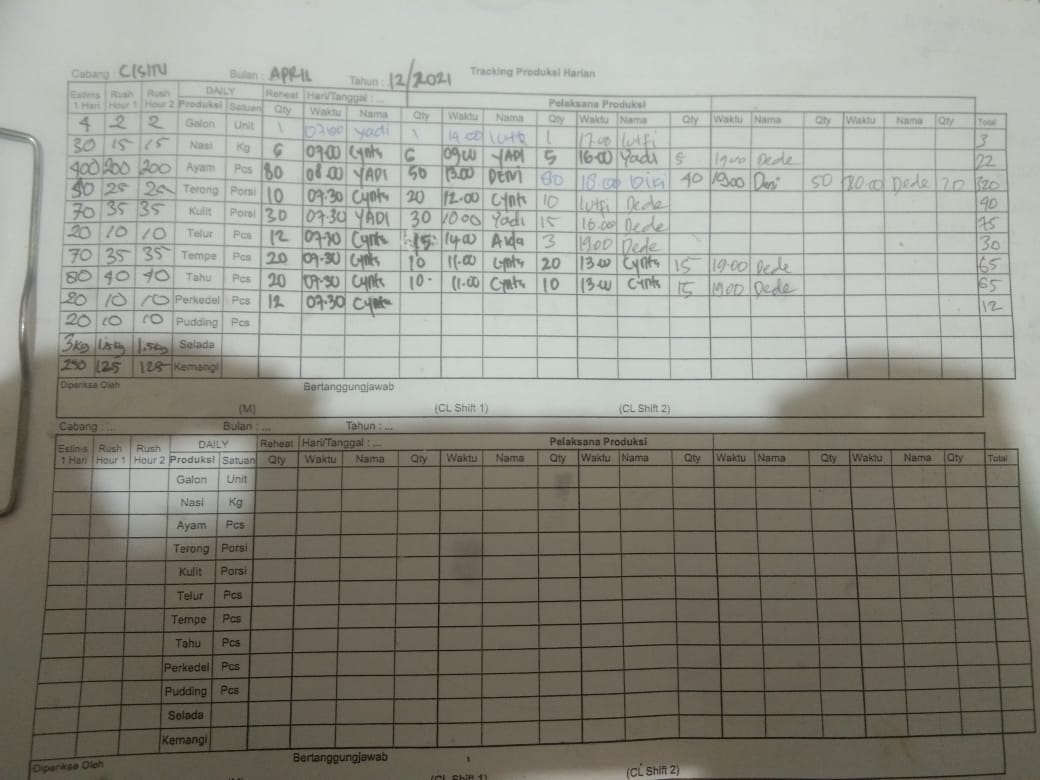 Cabang : CISITU Bulan : APRIL Tahun : 12/2021 Tracking Produksi Harian
Estims 1 Hari Rush Hour 1 Rush Hour 2 DAILY Reheat Hari/Tanggal : ... Pelaksana Produksi
Produksi Satuan Qty Waktu Nama Qty Waktu Nama Qty Waktu Nama Qty Waktu Nama Qty Waktu Nama Qty Total
4 2 2 Galon Unit 1 07.00 Yadi 1 14.00 Lutfi 1 17.00 Lutfi 3
30 15 15 Nasi Kg 6 07.00 Cynts 6 09.00 YADI 5 16.00 Yadi 5 19.00 Dede 22
400 200 200 Ayam Pcs 80 08.00 YADI 50 13.00 DENI 80 16.00 Diri 40 19.00 Deni 50 20.00 Dede 20 320
25 25 Terong Porsi 10 07.30 Cynts 20 12.00 Cynts 10 Lutfi Dede
70 35 35 Kulit Porsi 30 07.30 YADI 30 10.00 Yadi 15 16.00 Dede 75
20 10 10 Telur Pcs 12 07.30 Cynts 15 14.00 Aida 3 19.00 Dede 30
70 35 35 Tempe Pcs 20 07.30 Cynts 10 11.00 Cynts 20 13.00 Cynts 15 19.00 Dede 65
80 40 40 Tahu Pcs 20 07.30 Cynts 10 11.00 Cynts 10 13.00 Cynts 15 19.00 Dede 65
20 10 10 Perkedel Pcs 12 07.30 Cynts 12
20 10 10 Pudding Pcs
3kg 1.5kg 1.5kg Selada
250 125 125 Kemangi
Diperiksa Oleh Bertanggungjawab
(M) (CL Shift 1) (CL Shift 2)
Cabang : ... Bulan : ... Tahun : ...
Estims 1 Hari Rush Hour 1 Rush Hour 2 DAILY Reheat Hari/Tanggal : ... Pelaksana Produksi
Produksi Satuan Qty Waktu Nama Qty Waktu Nama Qty Waktu Nama Qty Waktu Nama Qty Waktu Nama Qty Total
Galon Unit
Nasi Kg
Ayam Pcs
Terong Porsi
Kulit Porsi
Telur Pcs
Tempe Pcs
Tahu Pcs
Perkedel Pcs
Pudding Pcs
Selada
Kemangi
Diperiksa Oleh Bertanggungjawab
(M) (CL Shift 1) (CL Shift 2)